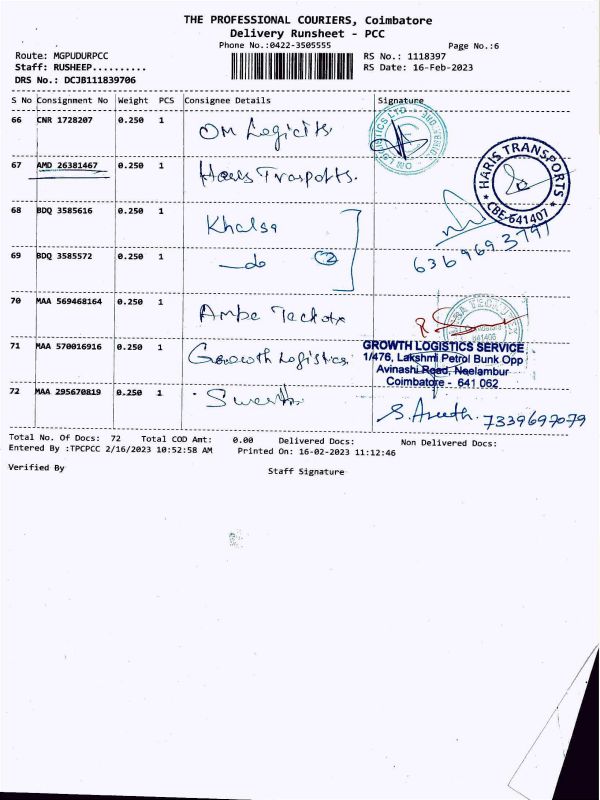 THE PROFESSIONAL COURIERS, Coimbatore
Delivery Runsheet - PCC
Phone No.:0422-3505555
Page No.:6
Route: MGPUDURPCC
RS No.: 1118397
Staff: RUSHEEP..........
RS Date: 16-Feb-2023
DRS No.: DCJB111839706
S No Consignment No Weight PCS Consignee Details Signature
66 CNR 1728207 0.250 1 OM Logicits
67 AMD 26381467 0.250 1 Haris Trasports.
HARIS TRANSPORTS
CBE-641407
68 BDQ 3585616 0.250 1 Khalsa
6369693791
69 BDQ 3585572 0.250 1 —do ②
70 MAA 569468164 0.250 1 Ambe
71 MAA 570016916 0.250 1 Growth Logistics
GROWTH LOGISTICS SERVICE
1/476, Lakshmi Petrol Bunk Opp
Avinashi Road, Neelambur
Coimbatore - 641 062
72 MAA 295670819 0.250 1
7339697079
Total No. Of Docs: 72 Total COD Amt: 0.00 Delivered Docs: Non Delivered Docs:
Entered By :TPCPCC 2/16/2023 10:52:58 AM Printed On: 16-02-2023 11:12:46
Verified By
Staff Signature